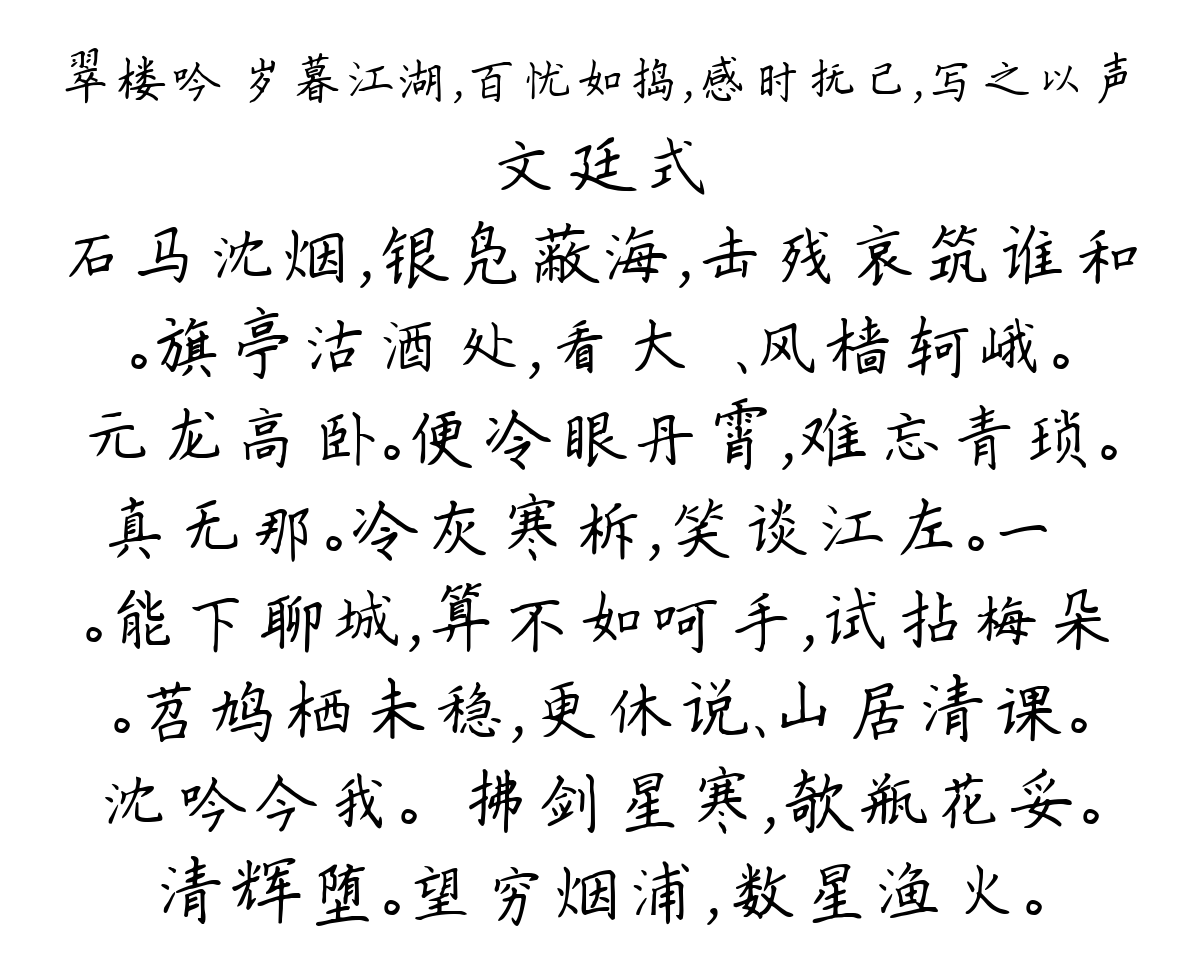 翠楼吟 岁暮江湖,百忧如捣,感时抚己,写之以声
文廷式
石马沈烟,银凫蔽海,击残哀筑谁和
。旗亭沽酒处,看大 、风樯轲峨。
元龙高卧。便冷眼丹霄,难忘青琐。
真无那。冷灰寒柝,笑谈江左。一
。能下聊城,算不如呵手,试拈梅朵
。苕鸠栖未稳,更休说、山居清课。
沈吟今我。拂剑星寒,欹瓶花妥。
清辉堕。望穷烟浦,数星渔火。